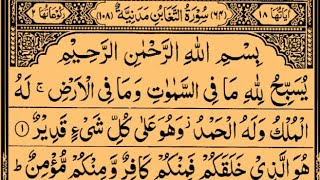 اٰیَاتُهَا ۱۸ (۶۴) سُوْرَةُ التَّغَابُنِ مَدَنِیَّةٌ (۱۰۸) رُكُوْعَاتُهَا ۲
بِسْمِ اللّٰهِ الرَّحْمٰنِ الرَّحِیْمِ
یُسَبِّحُ لِلّٰهِ مَا فِی السَّمٰوٰتِ وَمَا فِی الْاَرْضِ ۚ لَهُ
الْمُلْكُ وَلَهُ الْحَمْدُ ؗ وَهُوَ عَلٰی كُلِّ شَیْءٍ قَدِیْرٌ ۝۱
هُوَ الَّذِیْ خَلَقَكُمْ فَمِنْكُمْ كَافِرٌ وَّمِنْكُمْ مُّؤْمِنٌ ؕ